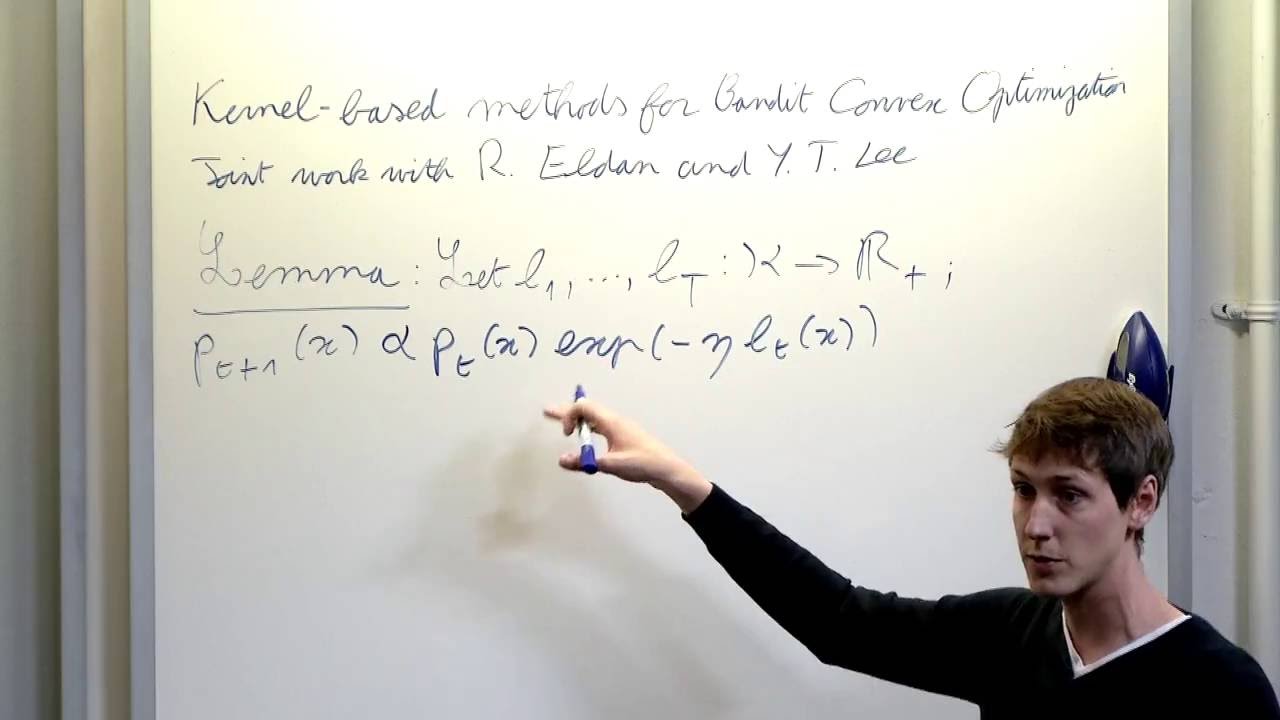 Kernel-based methods for Bandit Convex Optimization
Joint work with R. Eldan and Y. T. Lee
Lemma: Let l_1, ..., l_T : K → ℝ_+ ;
p_{t+1}(x) α p_t(x) exp(-η l_t(x))